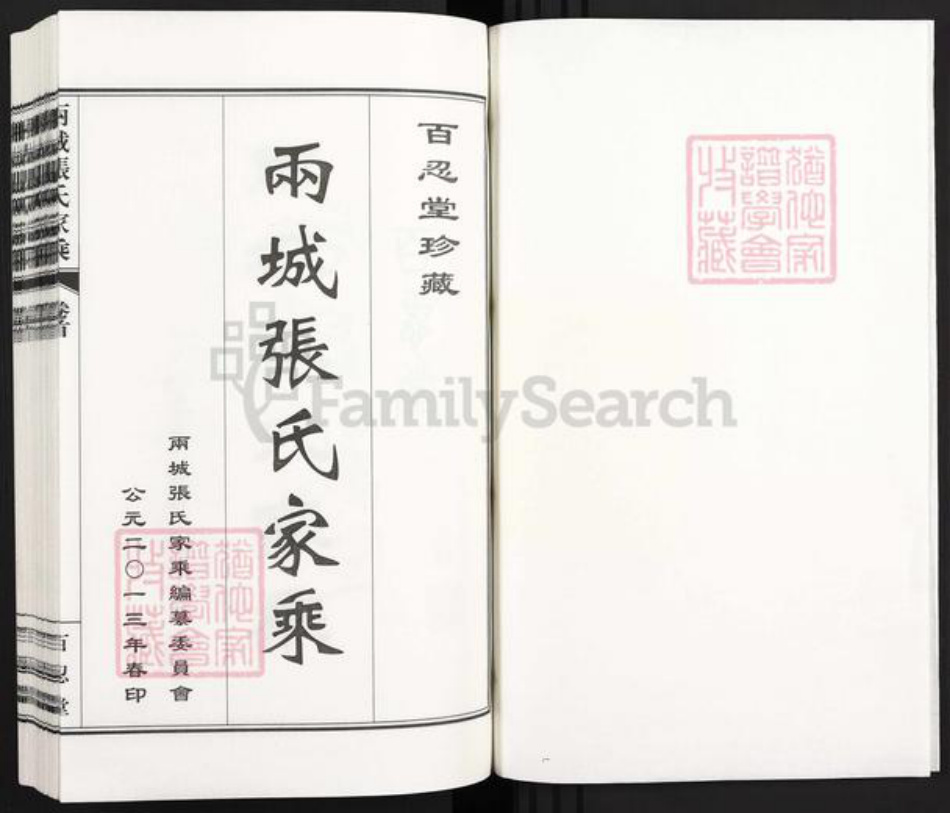 猶他家
譜學會
收藏
百忍堂珍藏
兩城張氏家乘
兩城張氏家乘編纂委員會
公元二〇一三年春印
猶他家
譜學會
收藏
兩城張氏家乘
卷首
百忍堂
FamilySearch